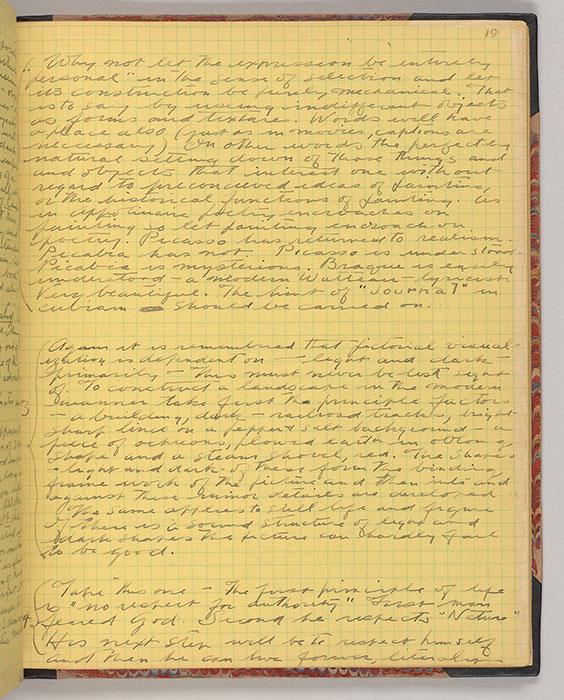 19
" Why not let the expression be entirely
personal" in the sense of selection and let
its construction be purely mechanical. That
is to say by useing indifferent objects
as forms and texture. Words will have
a place also (just as in movies, captions are
necessary) In other words the perfectly
natural setting down of those things and
and objects that interest one without
regard to preconceived ideas of painting,
or the historical functions of painting. As
in Appolinaire poetry encroaches on
painting so let painting encroach on
Poetry. Picasso has returned to realism.
Picabia has not — Picasso is understood.
Picabia is mysterious. Braque is easily
understood — a modern Watteau — lyricist
Very beautiful. The hint of "Journal" in
cubism — should be carried on.
Again it is remembered that pictorial visual-
ization is dependent on — light and dark
primarily — This must never be lost sight
of. To construct a landscape in the modern
manner take first the principle factors
— a building, dark — railroad tracks, bright
sharp lines on a pepper & salt background — a
piece of ochreous, plowed earth in oblong
shape and a steam shovel, red. The shapes
light and dark of these form the binding
frame work of the picture and then into and
against these minor details are developed
The same applies to still life and figure
If there is a sound structure of light and
dark shapes the picture can hardly fail
to be good.
Take this one — The first principle of life
is "no respect for authority" First man
feared God. Second he respects "Nature"
His next step will be to respect himself
and then he can live forever, literally